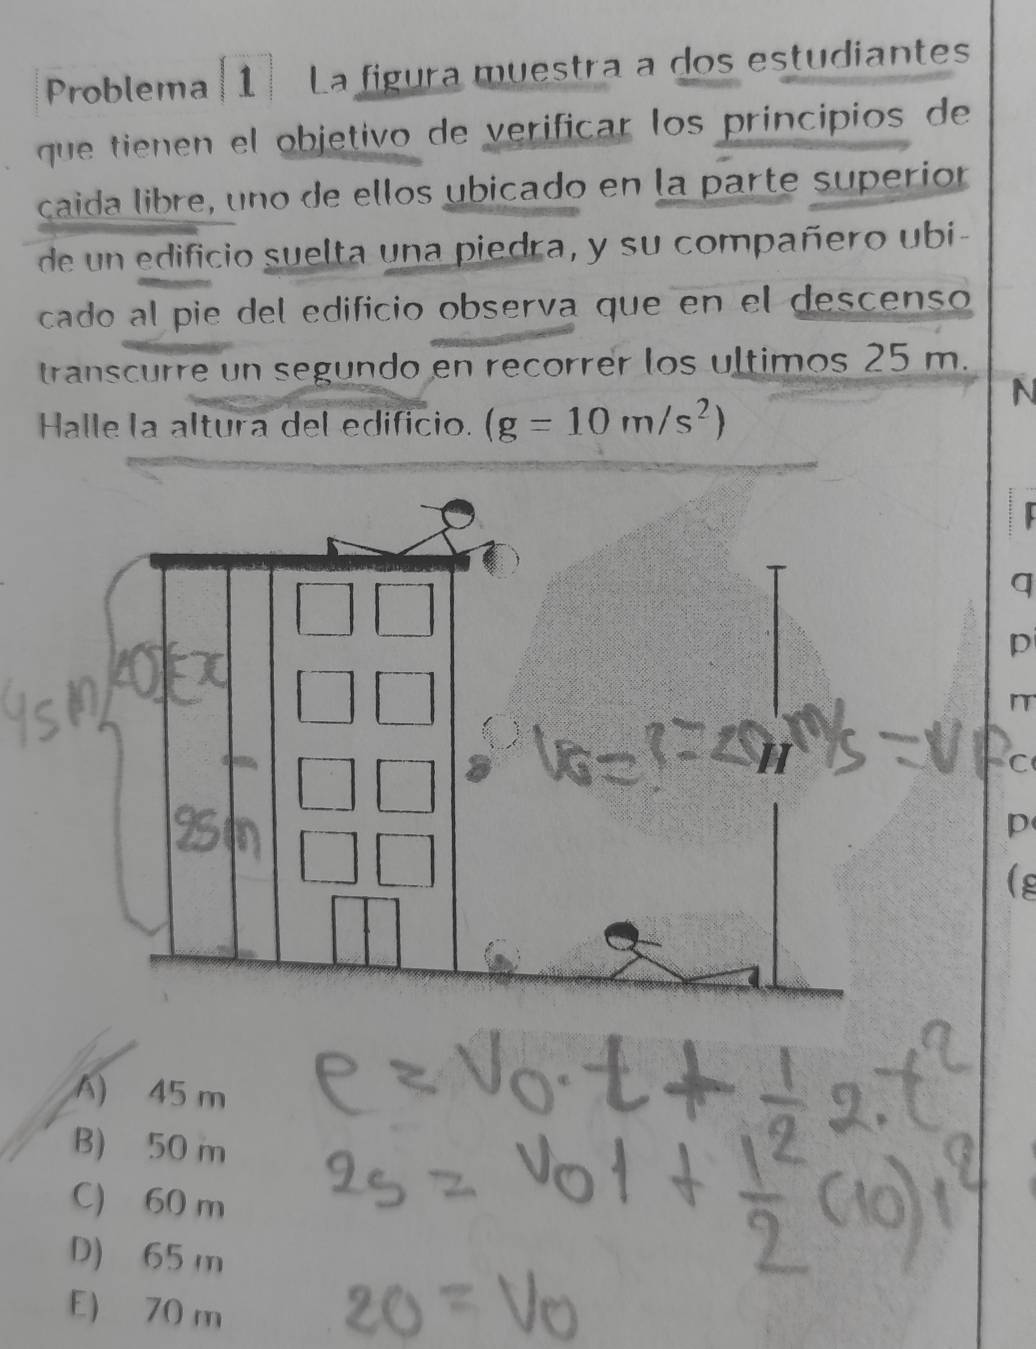 Problema 1 La figura muestra a dos estudiantes
que tienen el objetivo de verificar los principios de
caida libre, uno de ellos ubicado en la parte superior
de un edificio suelta una piedra, y su compañero ubi-
cado al pie del edificio observa que en el descenso
transcurre un segundo en recorrer los ultimos 25 m.
Halle la altura del edificio. (g = 10 m/s²)
45m
25m
V0=?=20 m/s = VF
H
A) 45 m
B) 50 m
C) 60 m
D) 65 m
E) 70 m
e = V0.t + 1/2 2.t²
25 = V01 + 1/2 (10)1²
20 = V0
N
q
p
m
c
p
(g